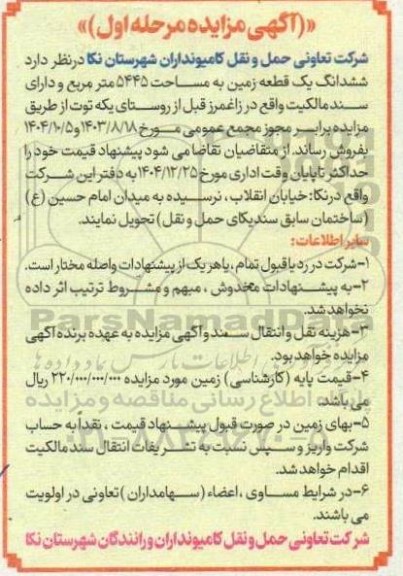 «(آگهی مزایده مرحله اول)»
شرکت تعاونی حمل و نقل کامیونداران شهرستان نکا در نظر دارد
ششدانگ یک قطعه زمین به مساحت ۵۴۴۵ متر مربع و دارای
سند مالکیت واقع در زاغمرز قبل از روستای یکه توت از طریق
مزایده برابر مجوز مجمع عمومی مورخ ۱۴۰۳/۸/۱۸ و ۱۴۰۴/۱۰/۵
بفروش رساند. از متقاضیان تقاضا می شود پیشنهاد قیمت خود را
حداکثر تا پایان وقت اداری مورخ ۱۴۰۴/۱۲/۲۵ به دفتر این شرکت
واقع در نکا: خیابان انقلاب، نرسیده به میدان امام حسین (ع)
(ساختمان سابق سندیکای حمل و نقل) تحویل نمایند.
سایر اطلاعات:
۱-شرکت در رد یا قبول تمام، یا هر یک از پیشنهادات واصله مختار است.
۲-به پیشنهادات مخدوش ، مبهم و مشروط ترتیب اثر داده
نخواهد شد.
ParsNamadData
۳-هزینه نقل و انتقال سند و آگهی مزایده به عهده برنده آگهی
مزایده خواهد بود.
۴-قیمت پایه (کارشناسی) زمین مورد مزایده ۲۲۰/۰۰۰/۰۰۰/۰۰۰ ریال
می باشد.
۵-بهای زمین در صورت قبول پیشنهاد قیمت ، نقداً به حساب
شرکت واریز و سپس نسبت به تشریفات انتقال سند مالکیت
اقدام خواهد شد.
۶-در شرایط مساوی ، اعضاء (سهامداران) تعاونی در اولویت
می باشند.
شرکت تعاونی حمل و نقل کامیونداران و رانندگان شهرستان نکا